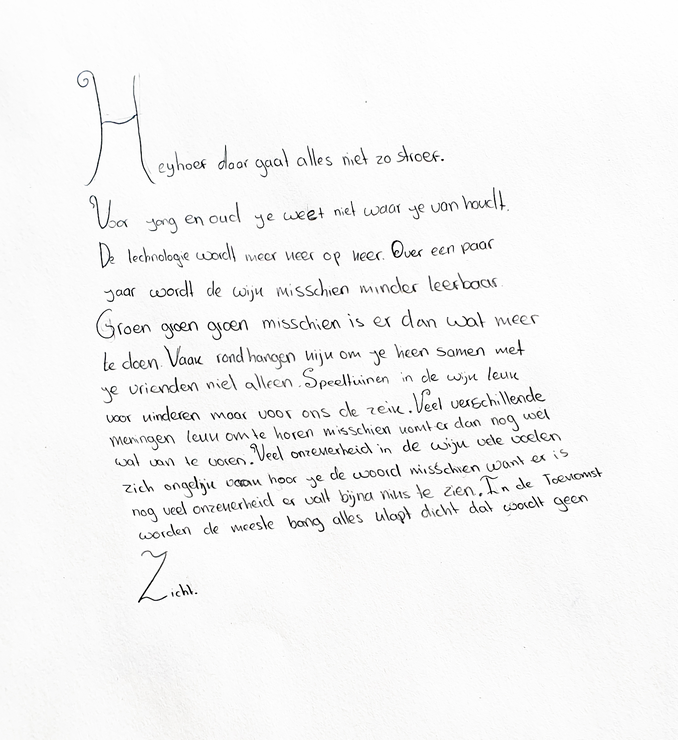 Heyhoef daar gaat alles niet zo stroef.
Voor jong en oud je weet niet waar je van houdt.
De technologie wordt meer keer op keer. Over een paar
jaar wordt de wijk misschien minder leefbaar.
Groen groen groen misschien is er dan wat meer
te doen. Vaak rondhangen kijk om je heen samen met
je vrienden niet alleen. Speeltuinen in de wijk leuk
voor kinderen maar voor ons de zeik. Veel verschillende
meningen leuk om te horen misschien komt er dan nog wel
wat van te voren. Veel onzekerheid in de wijk vele voelen
zich ongelijk vaak hoor je de woord misschien want er is
nog veel onzekerheid er valt bijna niks te zien. In de Toekomst
worden de meeste bang alles klapt dicht dat wordt geen
Zicht.